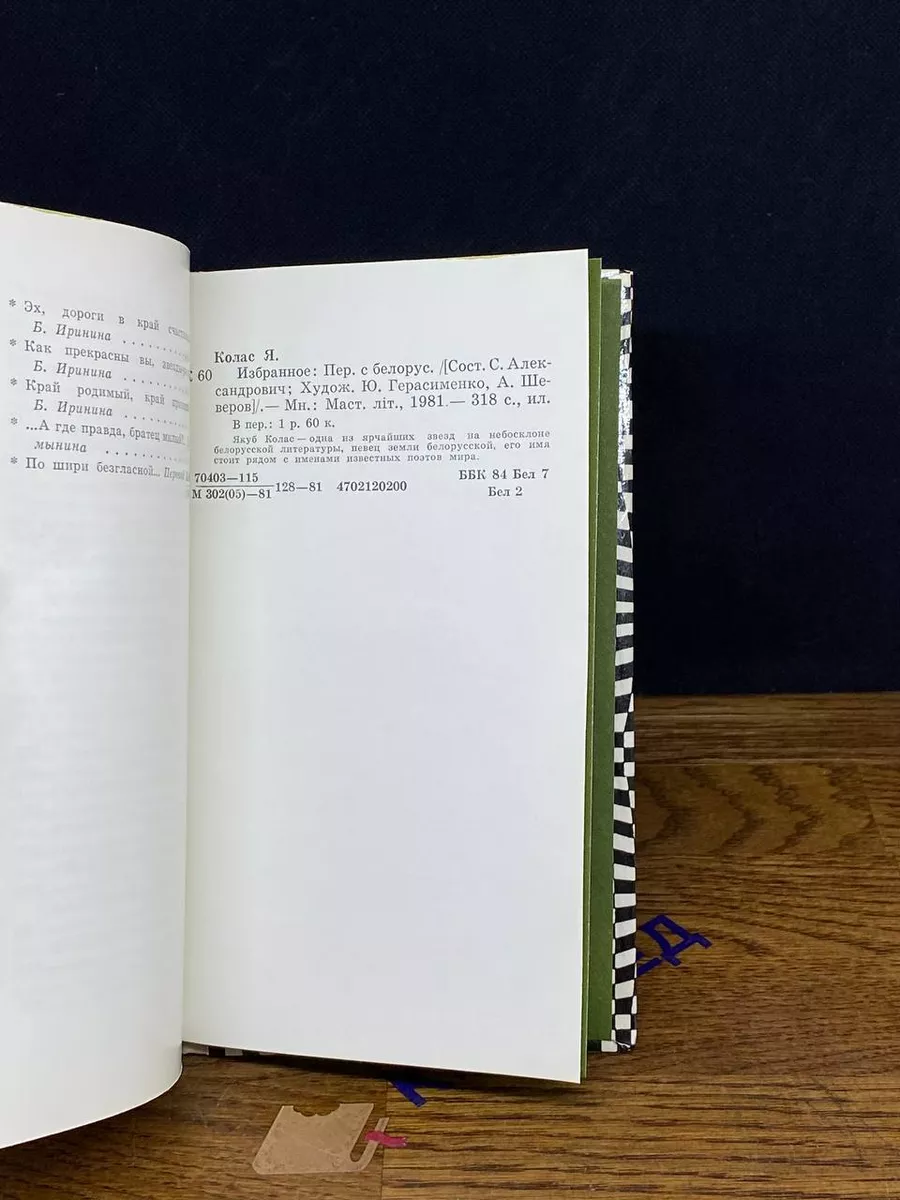 * Эх, дороги в край
Б. Иринина . . . . . . .
* Как прекрасны вы,
Б. Иринина . . . . . . .
* Край родимый, край
Б. Иринина . . . . . . .
* ...А где правда, братец милый?
мынина . . . . . . .
* По шири безгласной...
Колас Я.
К 60 Избранное: Пер. с белорус. /[Сост. С. Алек-
сандрович; Худож. Ю. Герасименко, А. Ше-
веров]/.— Мн.: Маст. літ., 1981.— 318 с., ил.
В пер.: 1 р. 60 к.
Якуб Колас — одна из ярчайших звезд на небосклоне
белорусской литературы, певец земли белорусской, его имя
стоит рядом с именами известных поэтов мира.
70403—115
М 302(05)—81
128—81 4702120200
ББК 84 Бел 7
Бел 2